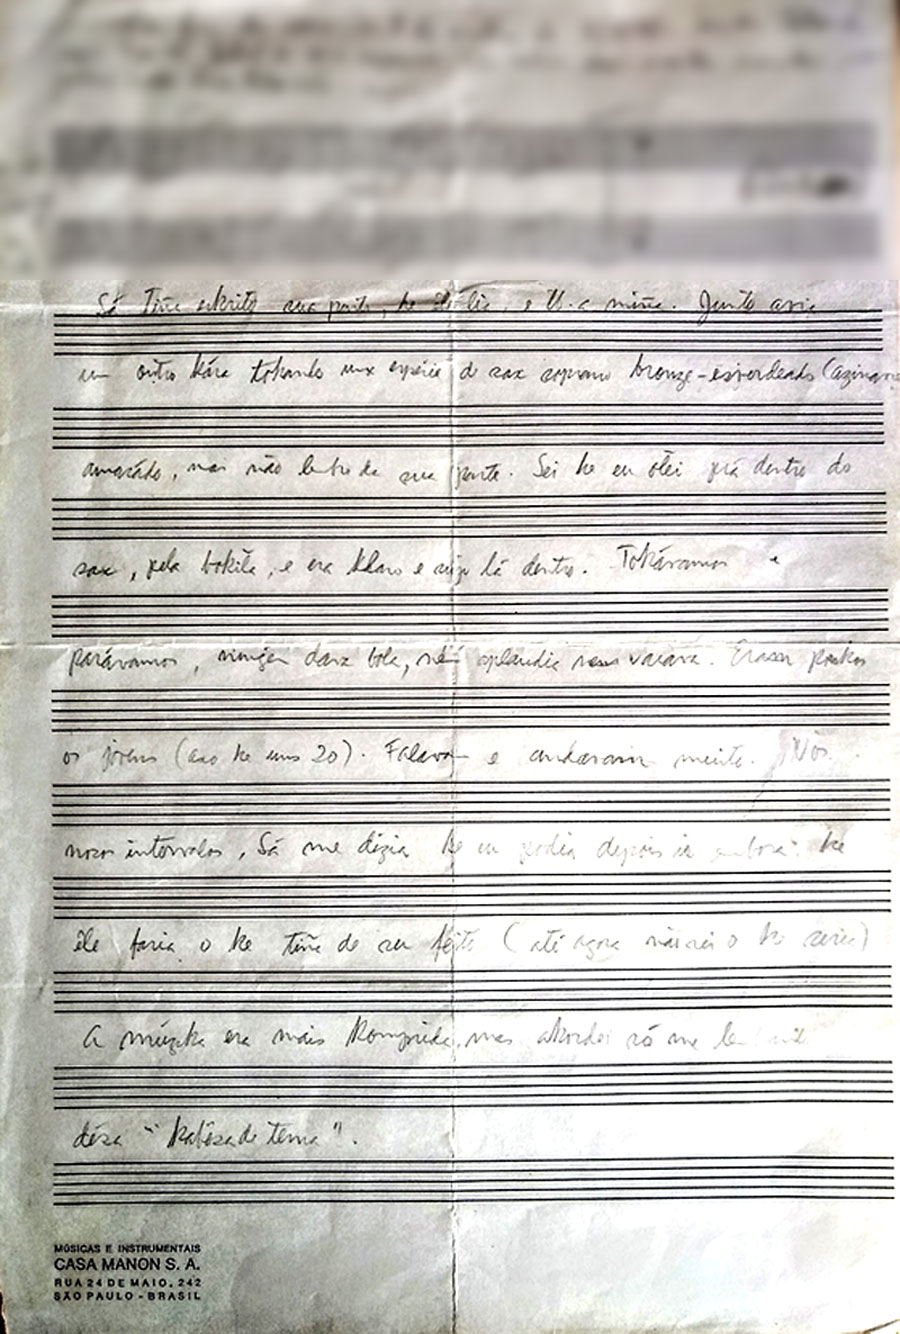 Sá Tiña eskrito sua parte, ke êle lia, e a miña. Junto avia
um outro kára tokando uma espésie de sax soprano bronze-esverdeado (azinavre
amarádo, mas não lembro da sua parte. Sei ke eu olei prá dentro do
sax, pela bokiła, e era klaro e sujo lá dentro. Tokávamos e
parávamos, ningen dava bola, nen aplaudia nem vaiava. Eram poukos
os jovens (axo ke uns 20). Falavam e andavam muito. Nos
nosos intervalos, Sá me dizia ke eu podia depois ir embora: ke
êle faria o ke tiña de ser feito (até agora não sei o ke seria)
A múzika era mais komprida, mas akordei só me
désa "kabésa de tema".
MÚSICAS E INSTRUMENTAIS
CASA MANON S. A.
RUA 24 DE MAIO, 242
SÃO PAULO - BRASIL